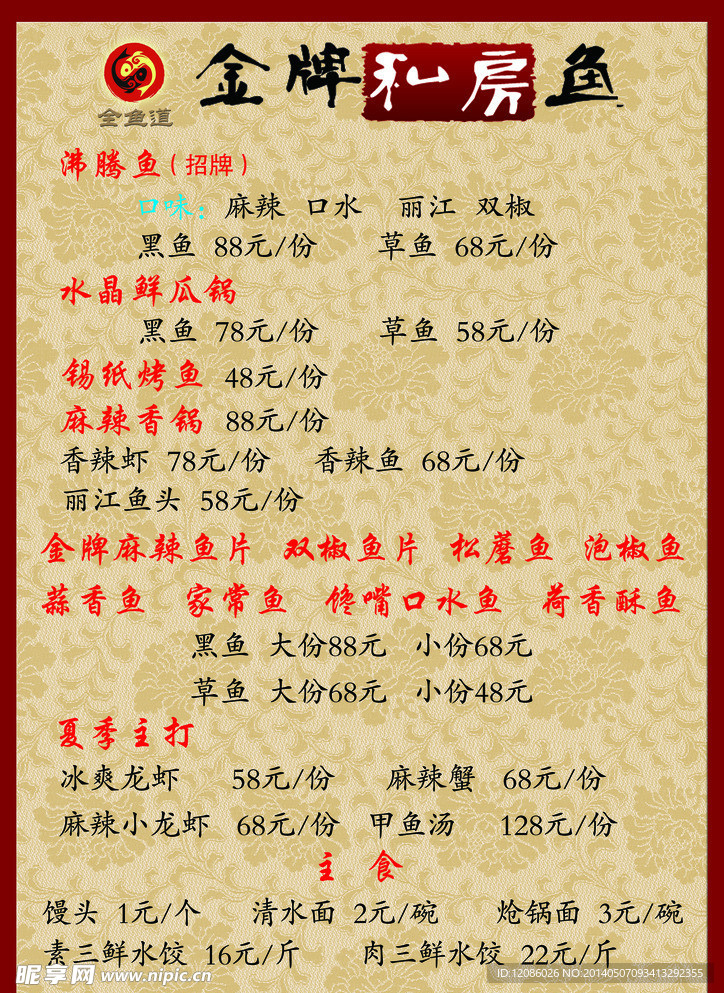 金牌私房鱼
全鱼道
沸腾鱼（招牌）
口味：麻辣 口水 丽江 双椒
黑鱼 88元/份 草鱼 68元/份
水晶鲜瓜锅
黑鱼 78元/份 草鱼 58元/份
锡纸烤鱼 48元/份
麻辣香锅 88元/份
香辣虾 78元/份 香辣鱼 68元/份
丽江鱼头 58元/份
金牌麻辣鱼片 双椒鱼片 松蘑鱼 泡椒鱼
蒜香鱼 家常鱼 馋嘴口水鱼 荷香酥鱼
黑鱼 大份88元 小份68元
草鱼 大份68元 小份48元
夏季主打
冰爽龙虾 58元/份 麻辣蟹 68元/份
麻辣小龙虾 68元/份 甲鱼汤 128元/份
主 食
馒头 1元/个 清水面 2元/碗 炝锅面 3元/碗
素三鲜水饺 16元/斤 肉三鲜水饺 22元/斤
昵享网 www.nipic.cn
ID:12086026 NO:20140507093413292355